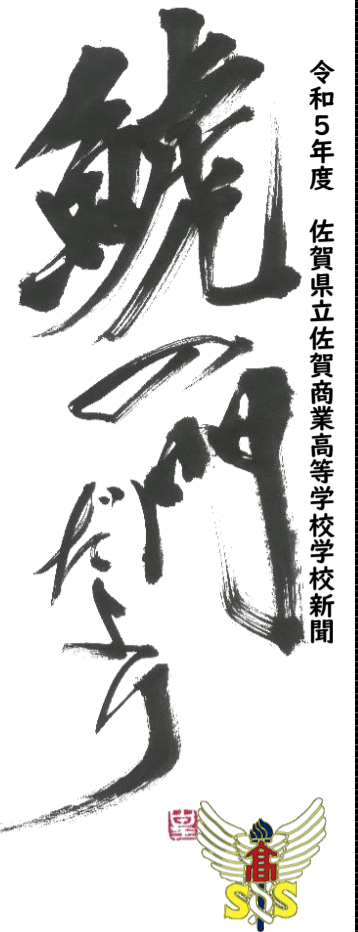 令和5年度 佐賀県立佐賀商業高等学校学校新聞
鯱の門だより
高
SS